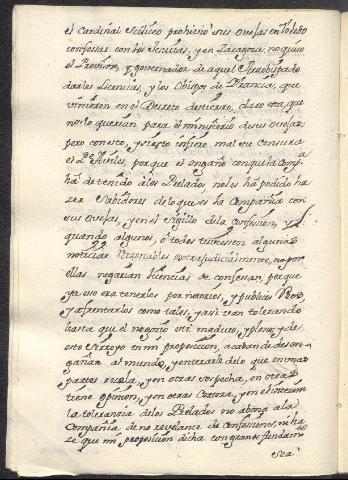 el Cardenal Siliceo prohivio sus Ovejas en Toledo
confesar con los Jesuitas, y en Zaragoza no quiso
el Provisor, y governador de aquel Arzobispado
darles Licencias, y los Obispos de Francia, que
vinieron en el Decreto destierro, claro esta, que
no los querian para el ministerio de sus Ovejas;
pero con esto, y cierto infiere mal su Censura
el Pe. porque el engaño con que la Compa.
ha detenido a los Prelados, no les ha podido ha
zer Sabidores de lo que es la Compañia con
sus Ovejas, y en el Sigillo de la Confesion, y
quando algunos, o todos tuviesen algunas
noticias razonables extrajudicialmente, no por
ellas negarian licencias de confesar, porque
ya eso era tenerlos por notorios, y publicos Reos,
y afrentarlos como tales, y asi van tolerando
hasta que el negocio este maduro, y pleno, y de
esto Arroyo en mi proposicion, acaban de desen
gañar al mundo, y enterarle de lo que en unas
partes recela, y en otras sospecha, en otras
tiene opinion, y en otras Certeza, y en el interin
la tolerancia de los Prelados no abona a la
Compañia de no revelante de Confesiones, ni ha
ze que mi proposicion dicha con grande fundamto
sea